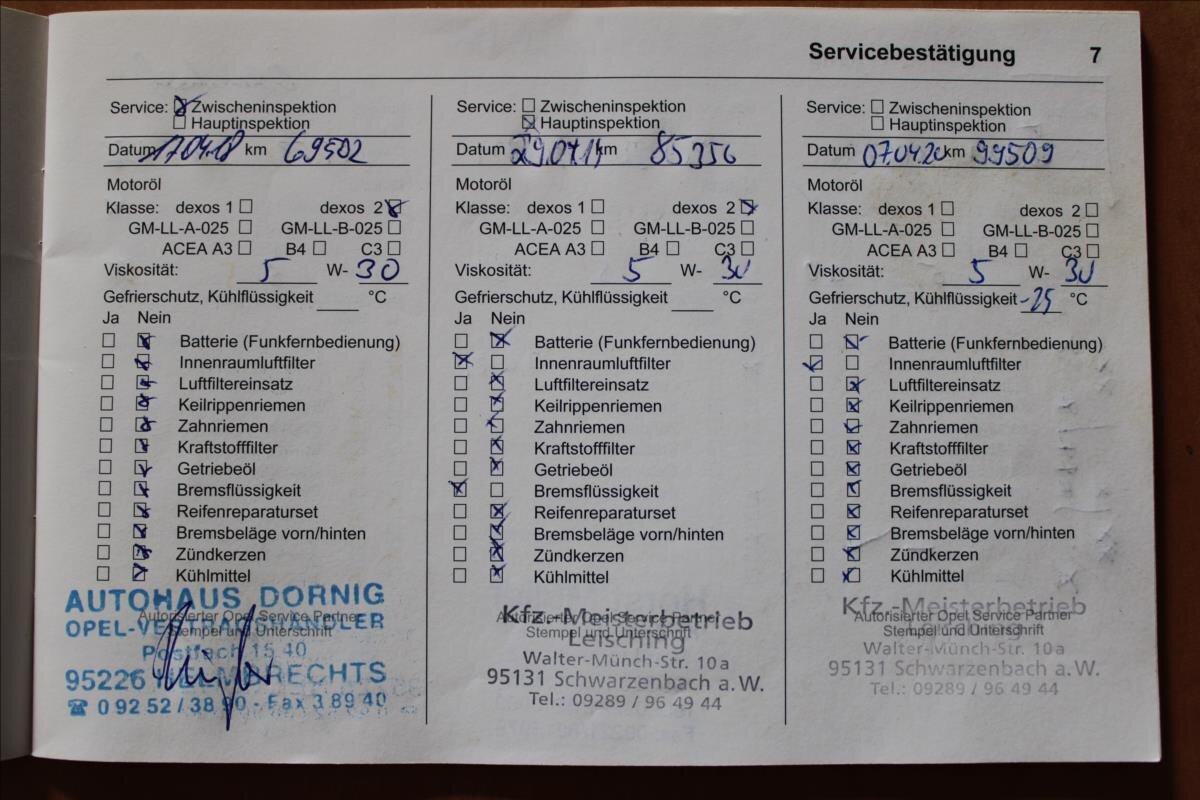 Servicebestätigung 7
Service: Zwischeninspektion
Hauptinspektion
Datum 17.04.18 km 69502
Motoröl
Klasse: dexos 1 dexos 2
GM-LL-A-025 GM-LL-B-025
ACEA A3 B4 C3
Viskosität: 5 W- 30
Gefrierschutz, Kühlflüssigkeit °C
Ja Nein
Batterie (Funkfernbedienung)
Innenraumluftfilter
Luftfiltereinsatz
Keilrippenriemen
Zahnriemen
Kraftstofffilter
Getriebeöl
Bremsflüssigkeit
Reifenreparaturset
Bremsbeläge vorn/hinten
Zündkerzen
Kühlmittel
AUTOHAUS DORNIG
Autorisierter Opel Service Partner
OPEL-VERTRAGSHÄNDLER
Stempel und Unterschrift
Postfach 15 40
95226 HELMBRECHTS
☎ 0 92 52 / 38 90 - Fax 3 89 40
Service: Zwischeninspektion
Hauptinspektion
Datum km 85356
Motoröl
Klasse: dexos 1 dexos 2
GM-LL-A-025 GM-LL-B-025
ACEA A3 B4 C3
Viskosität: 5 W- 30
Gefrierschutz, Kühlflüssigkeit °C
Ja Nein
Batterie (Funkfernbedienung)
Innenraumluftfilter
Luftfiltereinsatz
Keilrippenriemen
Zahnriemen
Kraftstofffilter
Getriebeöl
Bremsflüssigkeit
Reifenreparaturset
Bremsbeläge vorn/hinten
Zündkerzen
Kühlmittel
Kfz.-Meisterbetrieb
Autorisierter Opel Service Partner
Stempel und Unterschrift
Leisching
Walter-Münch-Str. 10a
95131 Schwarzenbach a.W.
Tel.: 09289 / 96 49 44
Service: Zwischeninspektion
Hauptinspektion
Datum 07.04.20 km 99509
Motoröl
Klasse: dexos 1 dexos 2
GM-LL-A-025 GM-LL-B-025
ACEA A3 B4 C3
Viskosität: 5 W- 30
Gefrierschutz, Kühlflüssigkeit -25 °C
Ja Nein
Batterie (Funkfernbedienung)
Innenraumluftfilter
Luftfiltereinsatz
Keilrippenriemen
Zahnriemen
Kraftstofffilter
Getriebeöl
Bremsflüssigkeit
Reifenreparaturset
Bremsbeläge vorn/hinten
Zündkerzen
Kühlmittel
Kfz.-Meisterbetrieb
Autorisierter Opel Service Partner
Leisching
Stempel und Unterschrift
Walter-Münch-Str. 10a
95131 Schwarzenbach a.W.
Tel.: 09289 / 96 49 44